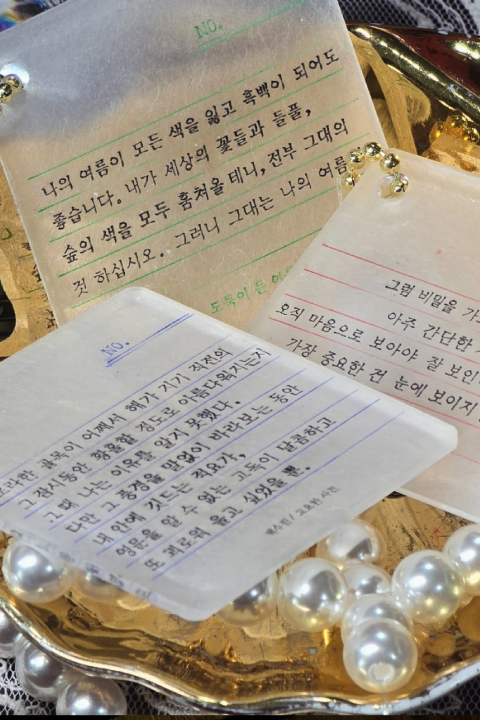 NO.
나의 여름이 모든 색을 잃고 흑백이 되어도
좋습니다. 내가 세상의 꽃들과 들풀,
숲의 색을 모두 훔쳐올 테니, 전부 그대의
것 하십시오.. 그러니 그대는 나의 여름
도둑이 든 여
그럼 비밀을
아주 간단한
오직 마음으로 보아야 잘 보인
가장 중요한 건 눈에 보이지
NO.
골목이 어째서 해가 지기 직전의
그 잠시동안 황홀할 정도로 아름다워지는지
그때 나는 이유를 알지 못했다.
다만 그 풍경을 말없이 바라보는 동안
내 안에 깃드는 적요가,
영문을 알 수 없는 고독이 달콤하고
또 괴로워 울고 싶었을 뿐.